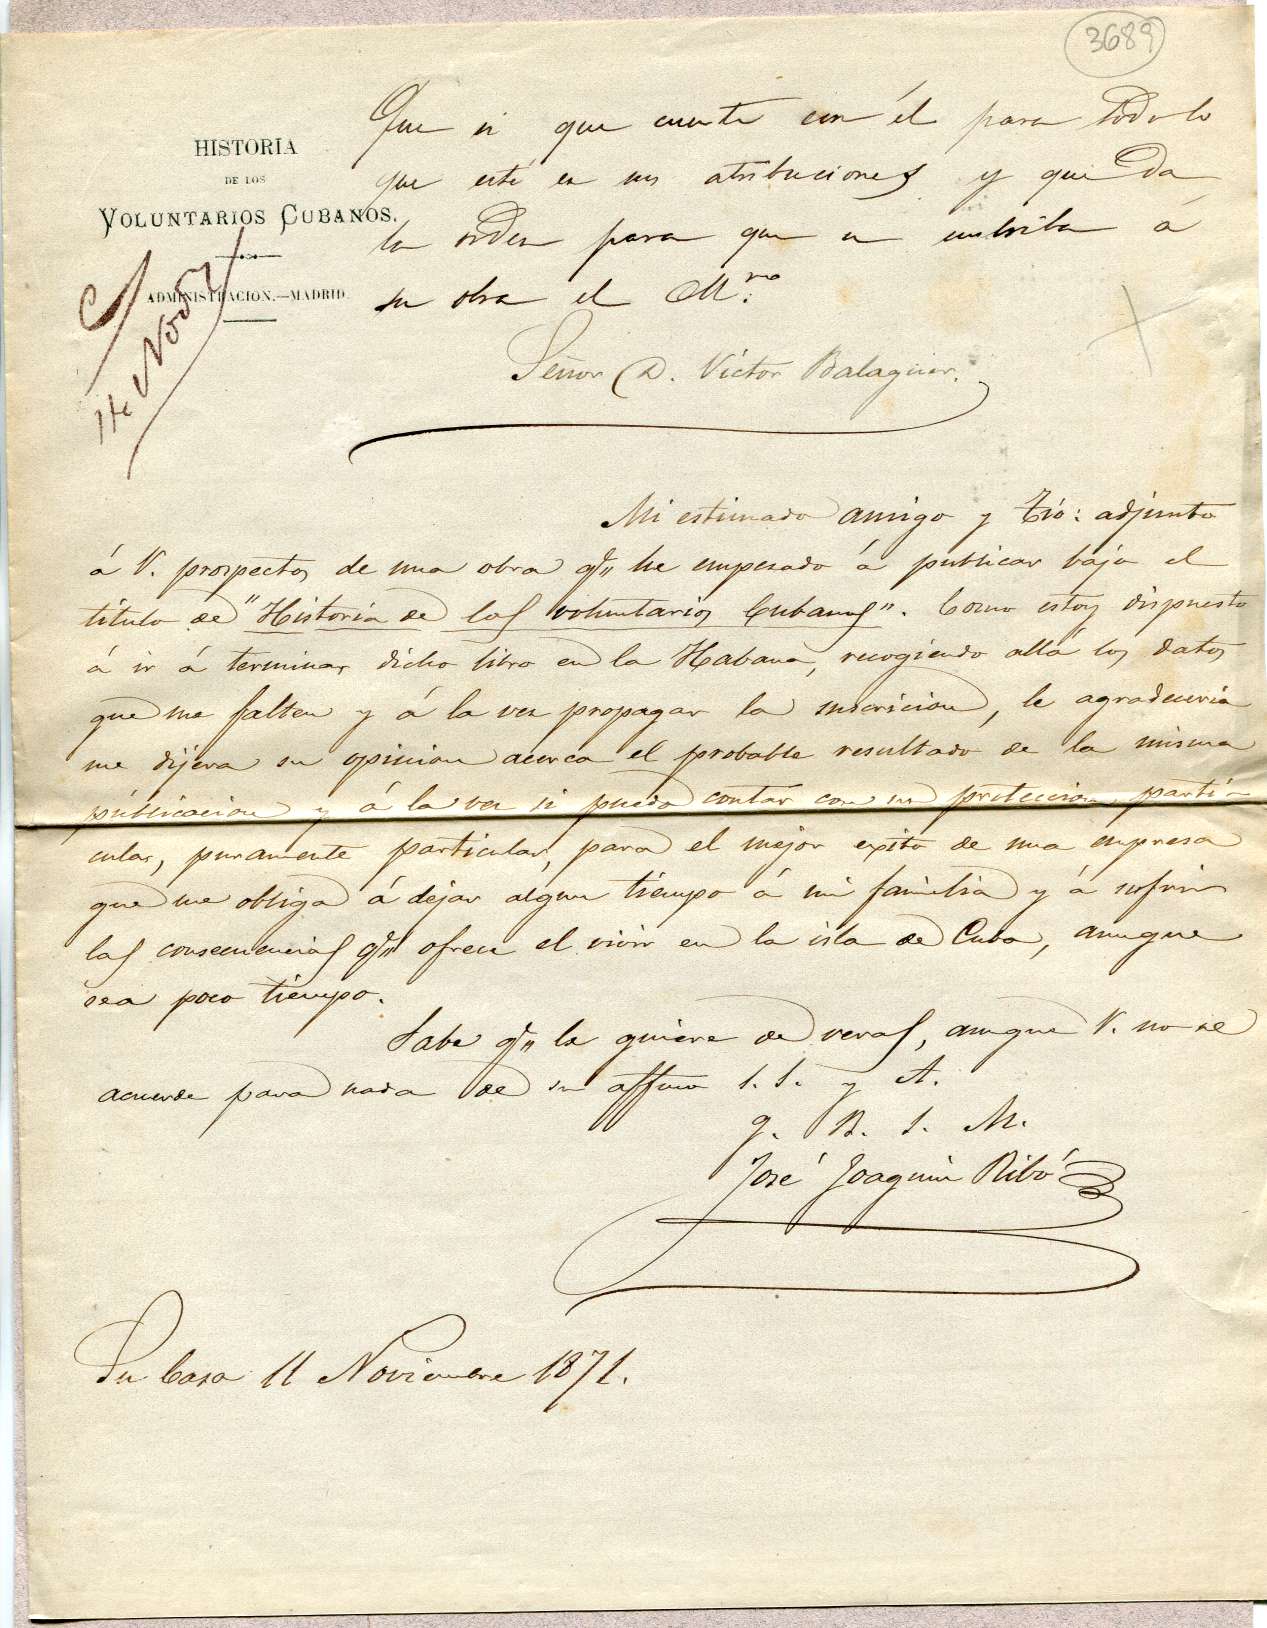 3689
HISTORIA
DE LOS
VOLUNTARIOS CUBANOS.
ADMINISTRACION.—MADRID.
C
14 Nov
Que si que cuente con él para todo lo
que esté en sus atribuciones y que da
la orden para que se suscriba á
su obra el Mrio.
Señor D. Victor Balaguer.
Mi estimado amigo y Tio: adjunto
á V. prospectos de una obra q" he empesado á publicar bajo el
titulo de "Historia de los voluntarios Cubanos". Como estoy dispuesto
á ir á terminar dicho libro en la Habana, recogiendo allá los datos
que me falten y á la vez propagar la suscricion, le agradeceria
me dijera su opinion acerca el probable resultado de la misma
publicacion y á la vez si puedo contar con su proteccion, parti-
cular, puramente particular, para el mejor exito de una empresa
que me obliga á dejar algun tiempo á mi familia y á sufrir
las consecuencias q" ofrece el vivir en la isla de Cuba, aunque
sea poco tiempo.
Sabe q" le quiere de veras, aunque V. no se
acuerde para nada de su affmo S. S. y A.
q. B. S. M.
José Joaquin Ribó
Su Casa 11 Noviembre 1871.